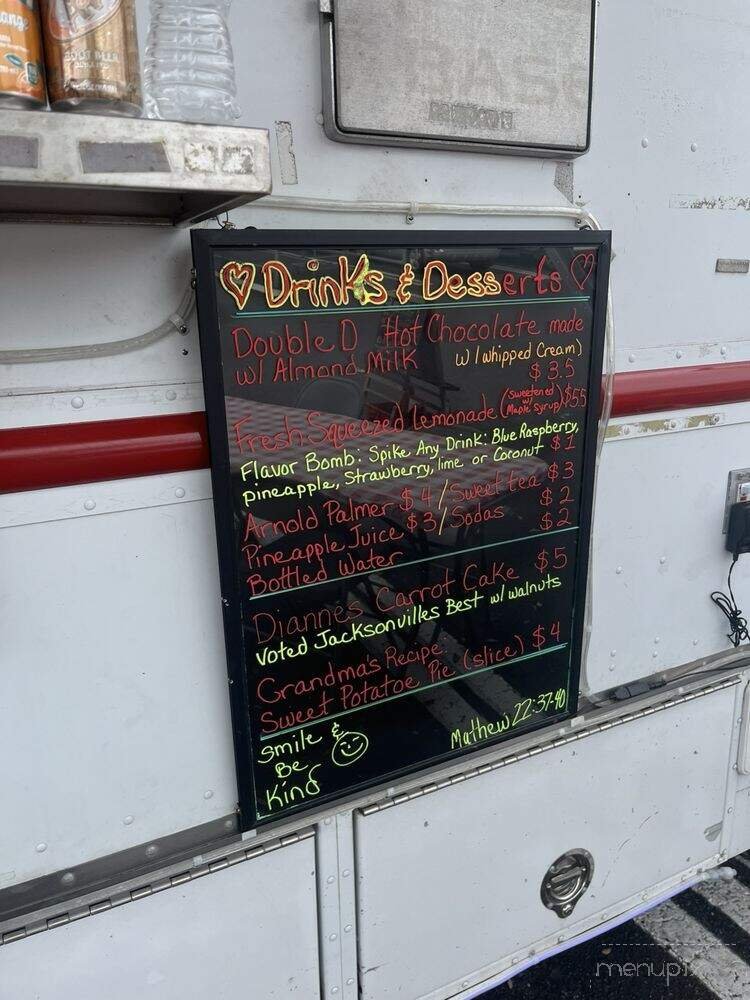 ange
ROOT BEER
♡ Drinks & Desserts ♡
Double D Hot Chocolate made
w/ Almond Milk w/whipped Cream)
$3.5
Fresh Squeezed Lemonade (sweetened w/ Maple syrup) $5.5
Flavor Bomb: Spike Any Drink: Blue Raspberry,
pineapple, Strawberry, lime or Coconut $1
Arnold Palmer $4/Sweet tea $3
Pineapple Juice $3/Sodas $2
Bottled Water $2
Diannes Carrot Cake $5
Voted Jacksonvilles Best w/ walnuts
Grandma's Recipe
Sweet Potatoe Pie (slice) $4
Smile &
Be
Kind
Mathew 22:37-40
menupix